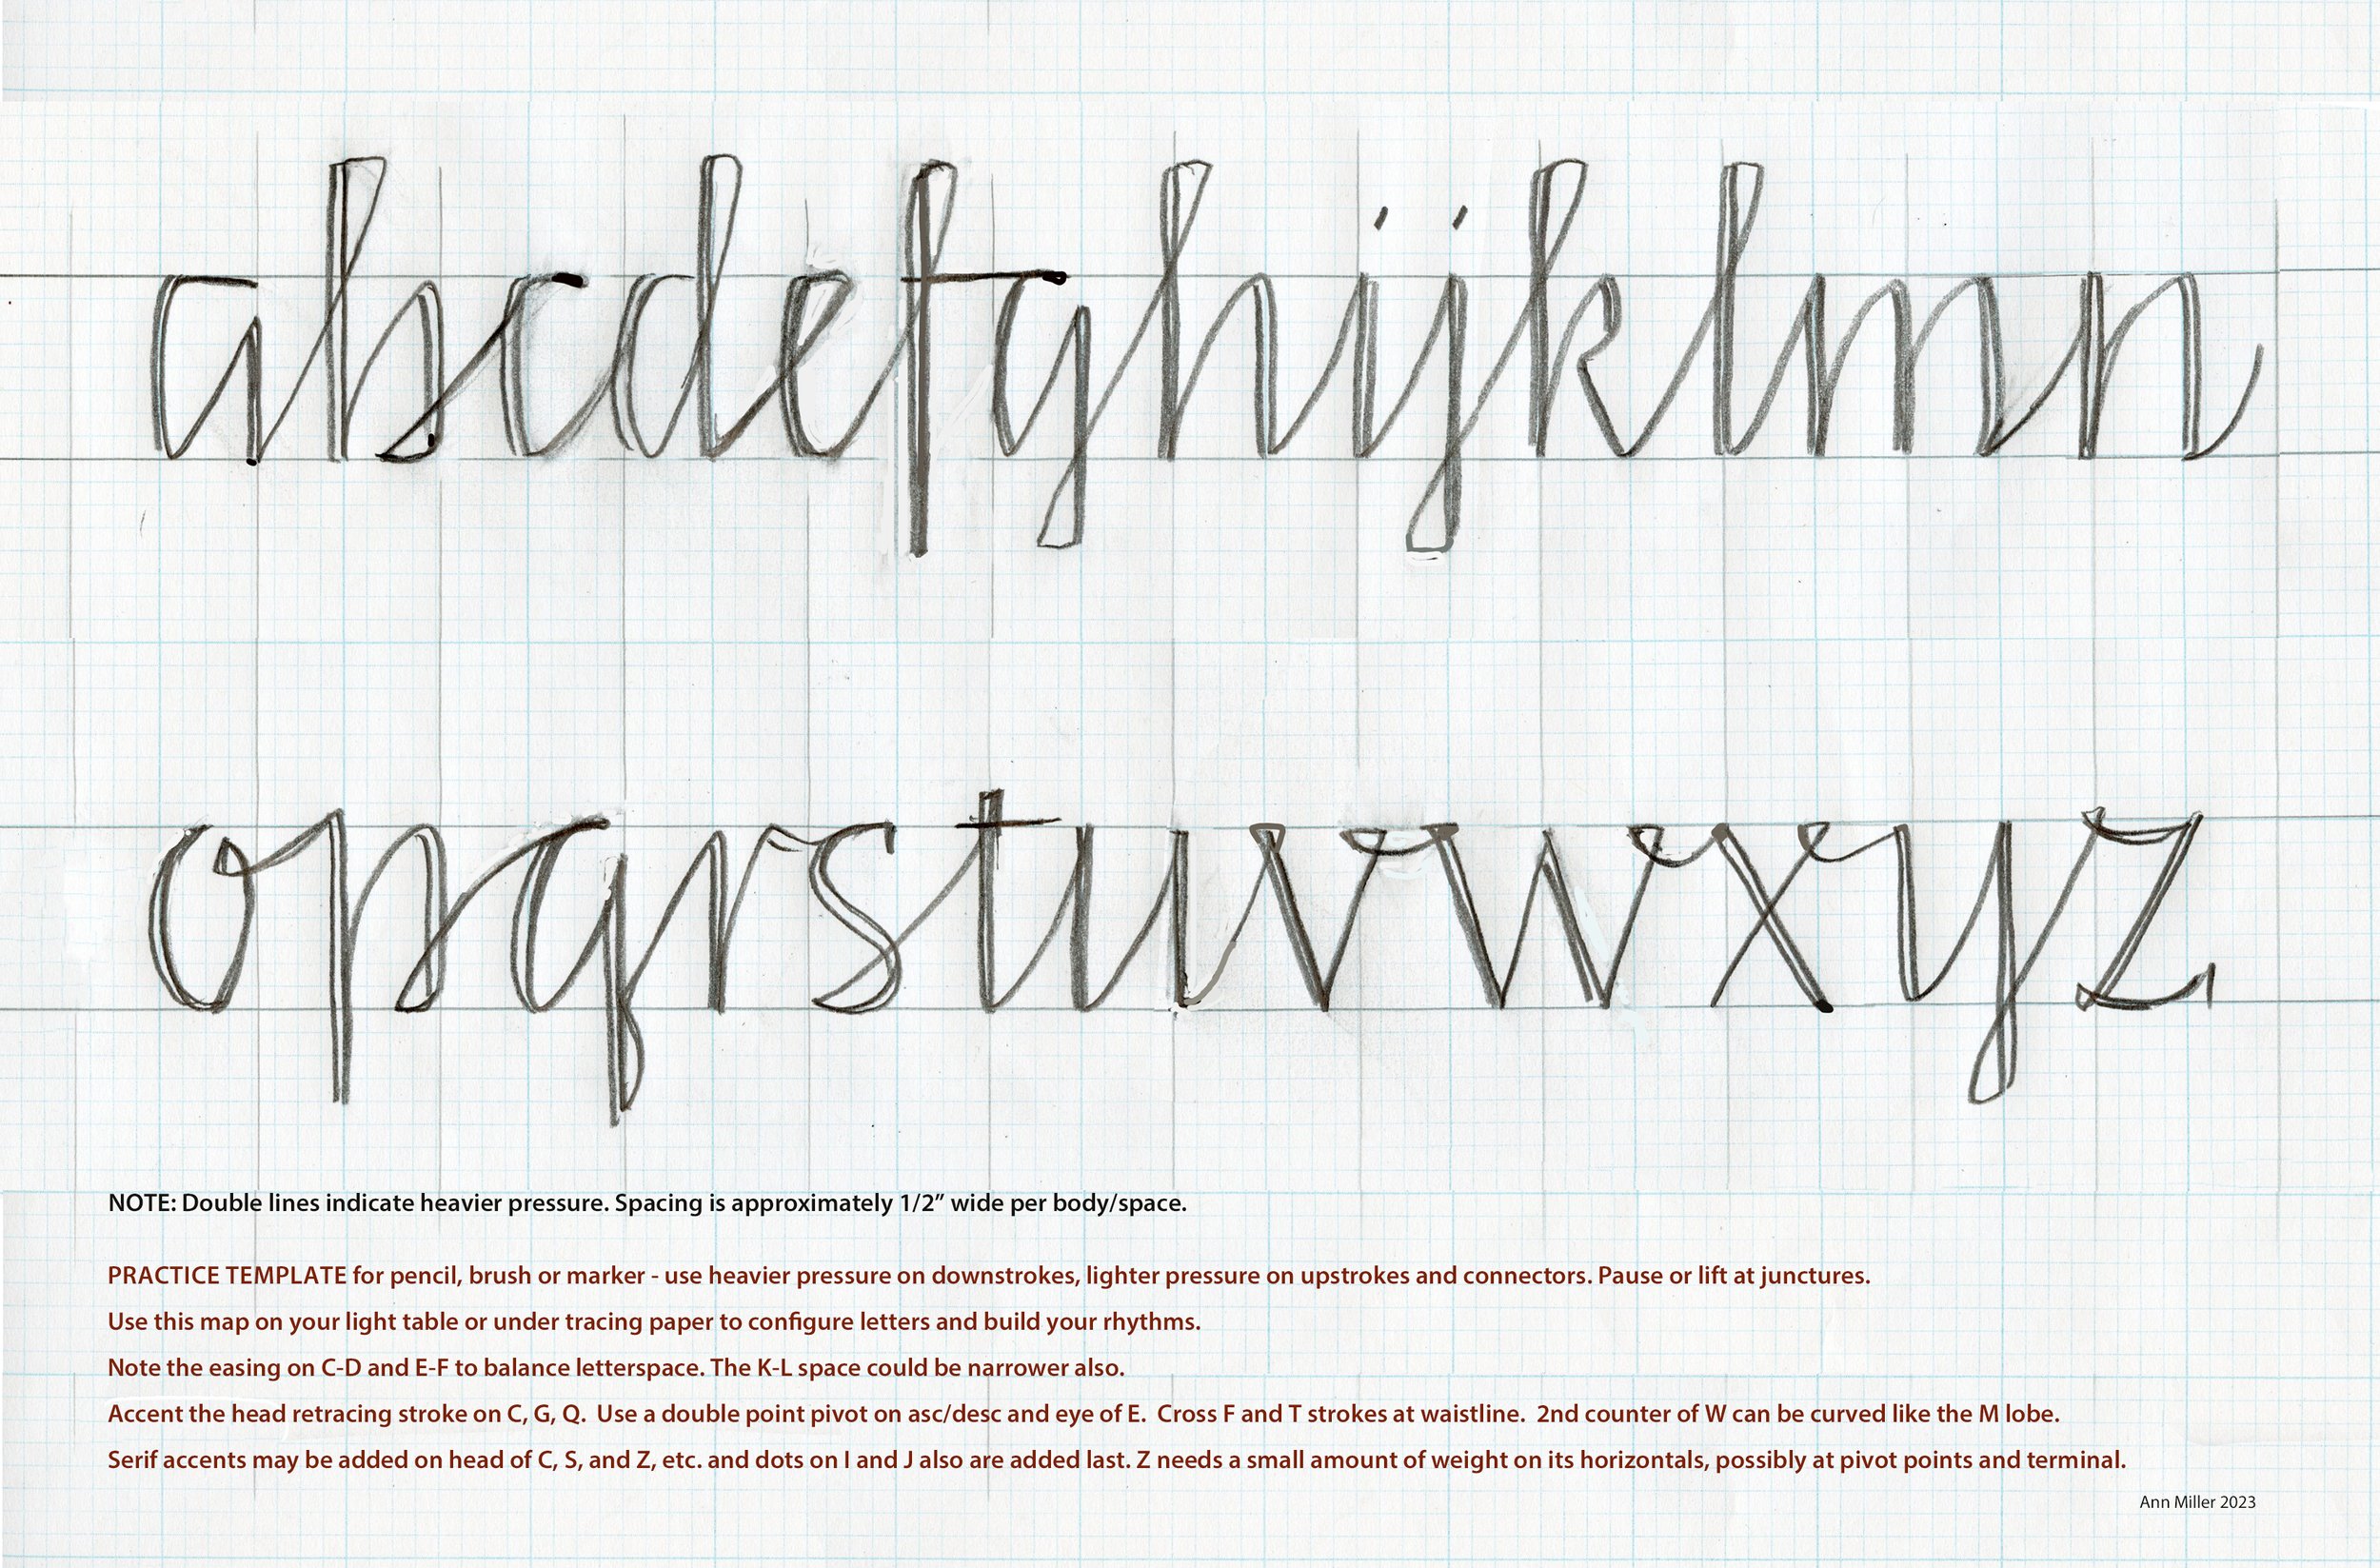 abcdefghijklmn
opqrstuvwxyz
NOTE: Double lines indicate heavier pressure. Spacing is approximately 1/2” wide per body/space.
PRACTICE TEMPLATE for pencil, brush or marker - use heavier pressure on downstrokes, lighter pressure on upstrokes and connectors. Pause or lift at junctures.
Use this map on your light table or under tracing paper to configure letters and build your rhythms.
Note the easing on C-D and E-F to balance letterspace. The K-L space could be narrower also.
Accent the head retracing stroke on C, G, Q.  Use a double point pivot on asc/desc and eye of E.  Cross F and T strokes at waistline.  2nd counter of W can be curved like the M lobe.
Serif accents may be added on head of C, S, and Z, etc. and dots on I and J also are added last. Z needs a small amount of weight on its horizontals, possibly at pivot points and terminal.
Ann Miller 2023